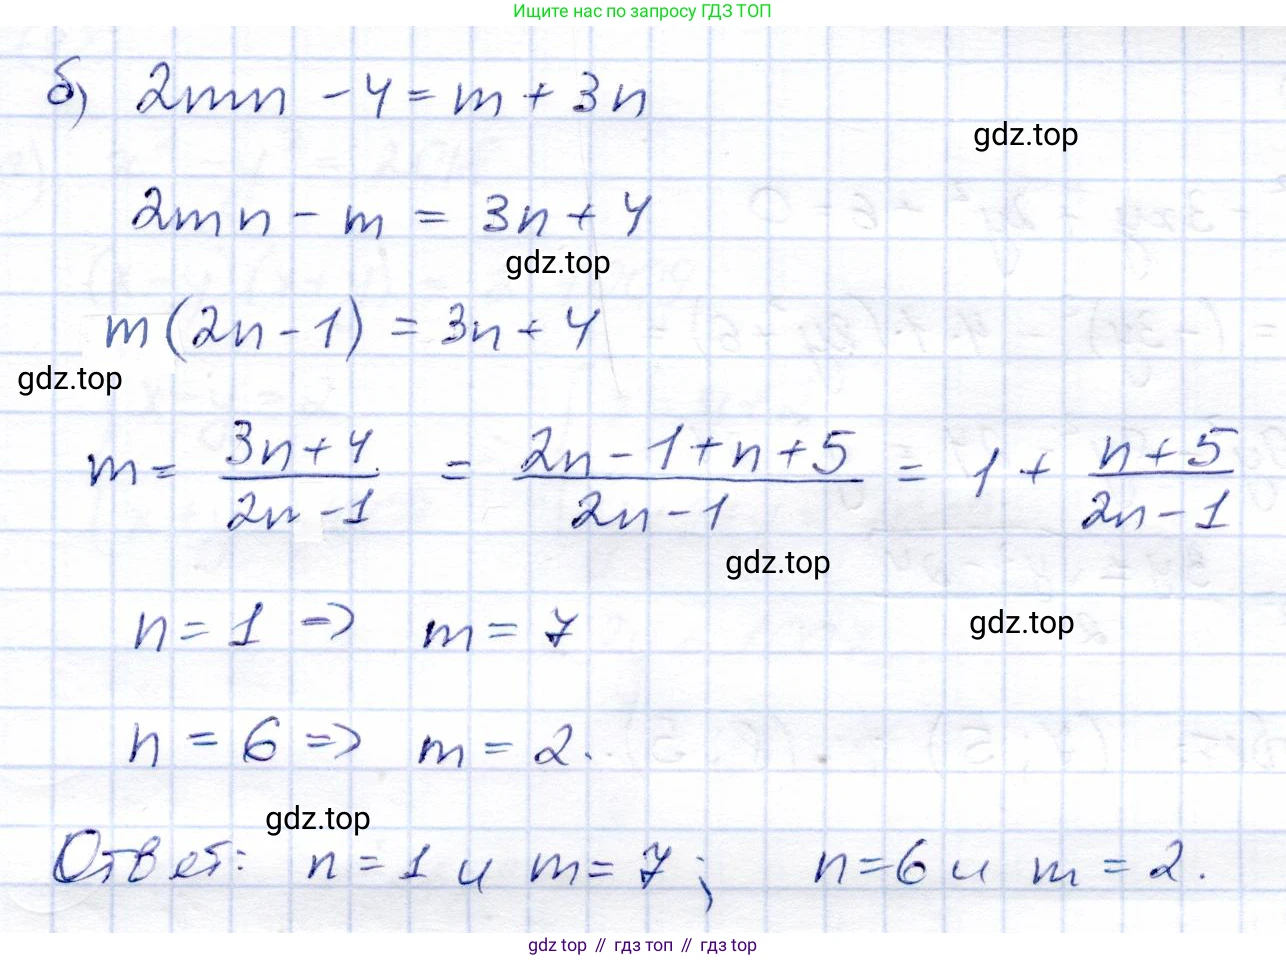 Ищите нас по запросу ГДЗ ТОП
б) 2mn - 4 = m + 3n
gdz.top
2mn - m = 3n + 4
gdz.top
m(2n - 1) = 3n + 4
gdz.top
m = (3n+4)/(2n-1) = (2n-1+n+5)/(2n-1) = 1 + (n+5)/(2n-1)
gdz.top
n = 1 => m = 7
gdz.top
n = 6 => m = 2.
gdz.top
Ответ: n = 1 и m = 7; n = 6 и m = 2.
gdz top // гдз топ // гдз top